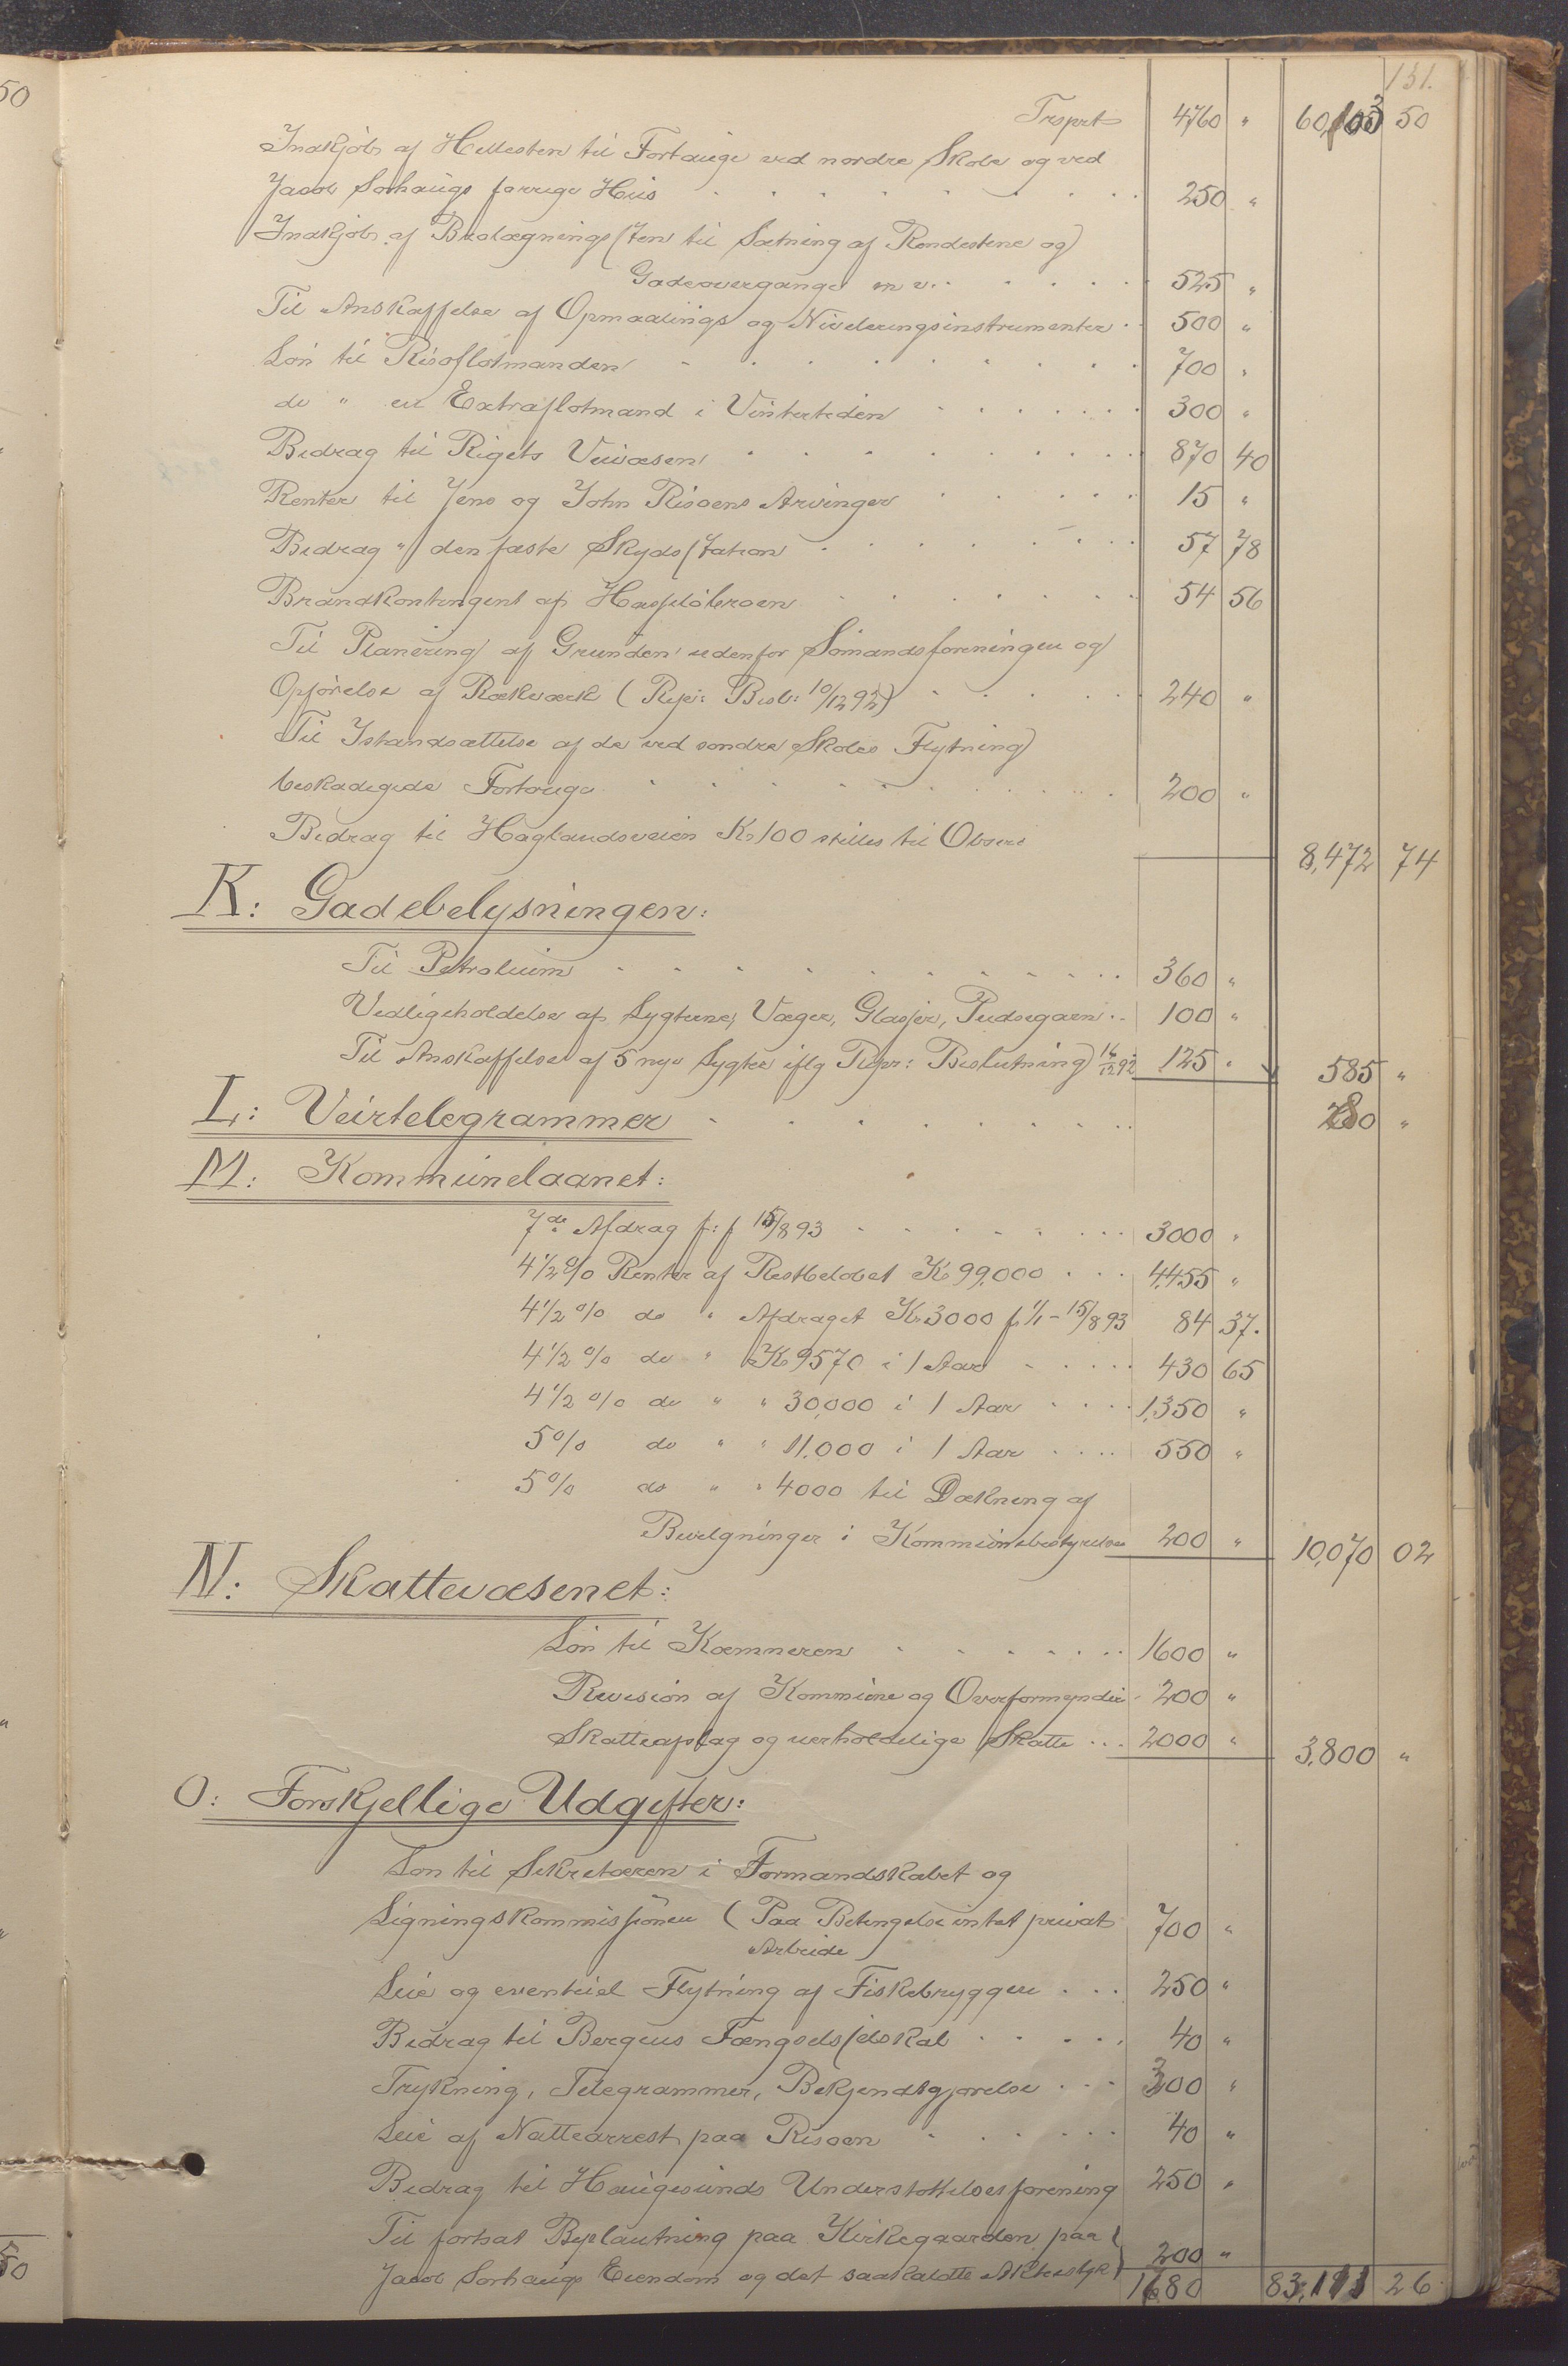 131.
Trsprt 4760 " 60,103 50
Indkjøb af Hellesten til Fortauge ved nordre Skole og ved
Jacob Sørhaugs forrige Hus . . . 250 "
Indkjøb af Brolægningssten til Sætning af Rendestene og
Gadeovergange m v. . . . 525 "
Til Anskaffelse af Opmaalings og Nivelleringsinstrumenter . 500 "
Løn til Risøflotmanden . . . 700 "
do " en Extraflotmand i Vintertiden . . . 300 "
Bidrag til Rigets Veivæsen . . . 870 40
Renter til Jens og John Risøens Arvinger . . . 15 "
Bidrag " den faste Skydsstation . . . 57 78
Brandkontingent af Hasseløbroen . . . 54 56
Til Planering af Grunden udenfor Sømandsforeningen og
Opførelse af Rækværk (Repr: Besl: 10/12 92) . . . 240 "
Til Istandsættelse af de ved søndre Skoles Flytning
beskadigede Fortauge . . . 200 "
Bidrag til Haglandsveien Kr 100 stilles til Observ
8,472 74
K: Gadebelysningen:
Til Petroleum . . . 360 "
Vedligeholdelse af Lygterne, Væger, Glasser, Pudsegarn . . 100 "
Til Anskaffelse af 5 nye Lygter iflg Repr: Beslutning 14/12 92 125 " 585 "
L: Veirtelegrammer . . . 280 "
M: Kommunelaanet:
7de Afdrag p: f 15/8 93 . . . 3000 "
4 1/2 % Renter af Restbeløbet Kr 99,000 . . . 4,455 "
4 1/2 % do " Afdraget Kr 3000 f 1/1 - 15/8 93 84 37.
4 1/2 % do " Kr 9570 i 1 Aar . . . 430 65
4 1/2 % do " " 30,000 i 1 Aar . . . 1,350 "
5 % do " " 11,000 i 1 Aar . . . 550 "
5 % do " " 4000 til Dækning af
Bevilgninger i Kommunebestyrelsen 200 " 10,070 02
N: Skattevæsenet:
Løn til Kæmneren . . . 1600 "
Revision af Kommune og Overformynder 200 "
Skatteafslag og uerholdelige Skatte . . . 2000 " 3,800 "
O: Forskjellige Udgifter:
Løn til Sekretæren i Formandskabet og
Ligningskommissionen (Paa Betingelse intet privat 700 "
Arbeide
Leie og eventuel Flytning af Fiskebryggen . . . 250 "
Bidrag til Bergens Fængselsselskab . . . 40 "
Trykning, Telegrammer, Bekjendtgjørelse . . . 300 "
Leie af Nattearrest paa Risøen . . . 40 "
Bidrag til Haugesunds Understøttelsesforening 250 "
Til fortsat Beplantning paa Kirkegaarden paa
Jacob Sørhaugs Eiendom og det saakaldte 200 "
1680 83,111 26